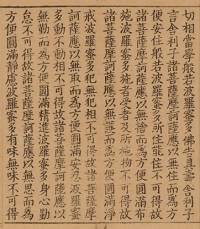 切相當學般若波羅蜜多佛告具壽舍利子
言舍利子諸菩薩摩訶薩應以無住而為方
便安住般若波羅蜜多所住能住不可得故
諸菩薩摩訶薩應以無捨而為方便圓滿布
施波羅蜜多施者受者及所施物不可得故
諸菩薩摩訶薩應以無護而為方便圓滿淨
戒波羅蜜多犯無犯相不可得故諸菩薩摩
訶薩應以無取而為方便圓滿安忍波羅蜜
多動不動相不可得故諸菩薩摩訶薩應以
無勤而為方便圓滿精進波羅蜜多身心勤
怠不可得故諸菩薩摩訶薩應以無思而為
方便圓滿靜慮波羅蜜多有味無味不可得